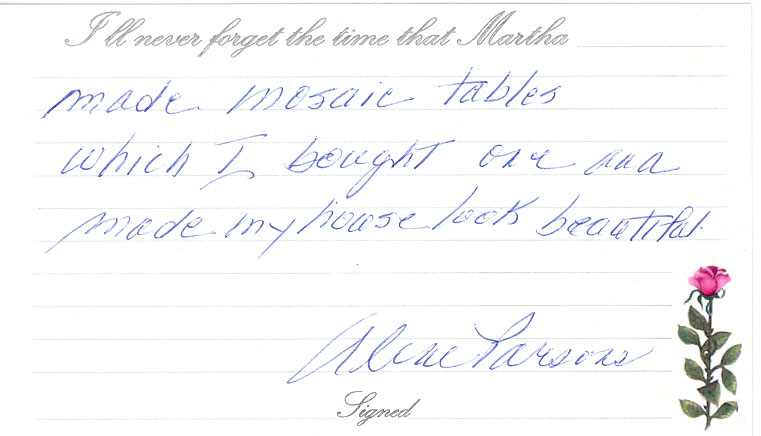 I'll never forget the time that Martha
made mosaic tables
which I bought one and
made my house look beautiful.
Alene Parsons
Signed